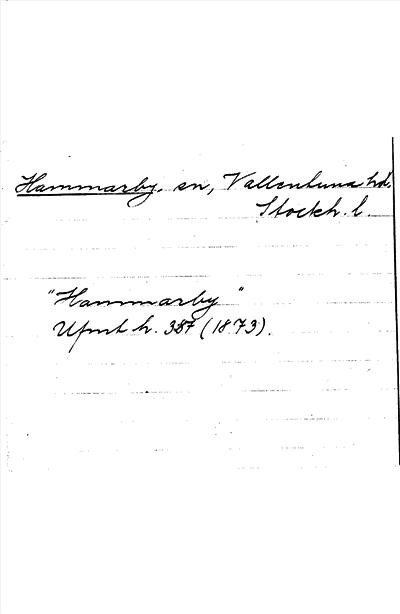 Hammarby, sn, Vallentuna hd.
Stockh. l.
"Hammarby"
Ufmt h. 387 (1873).